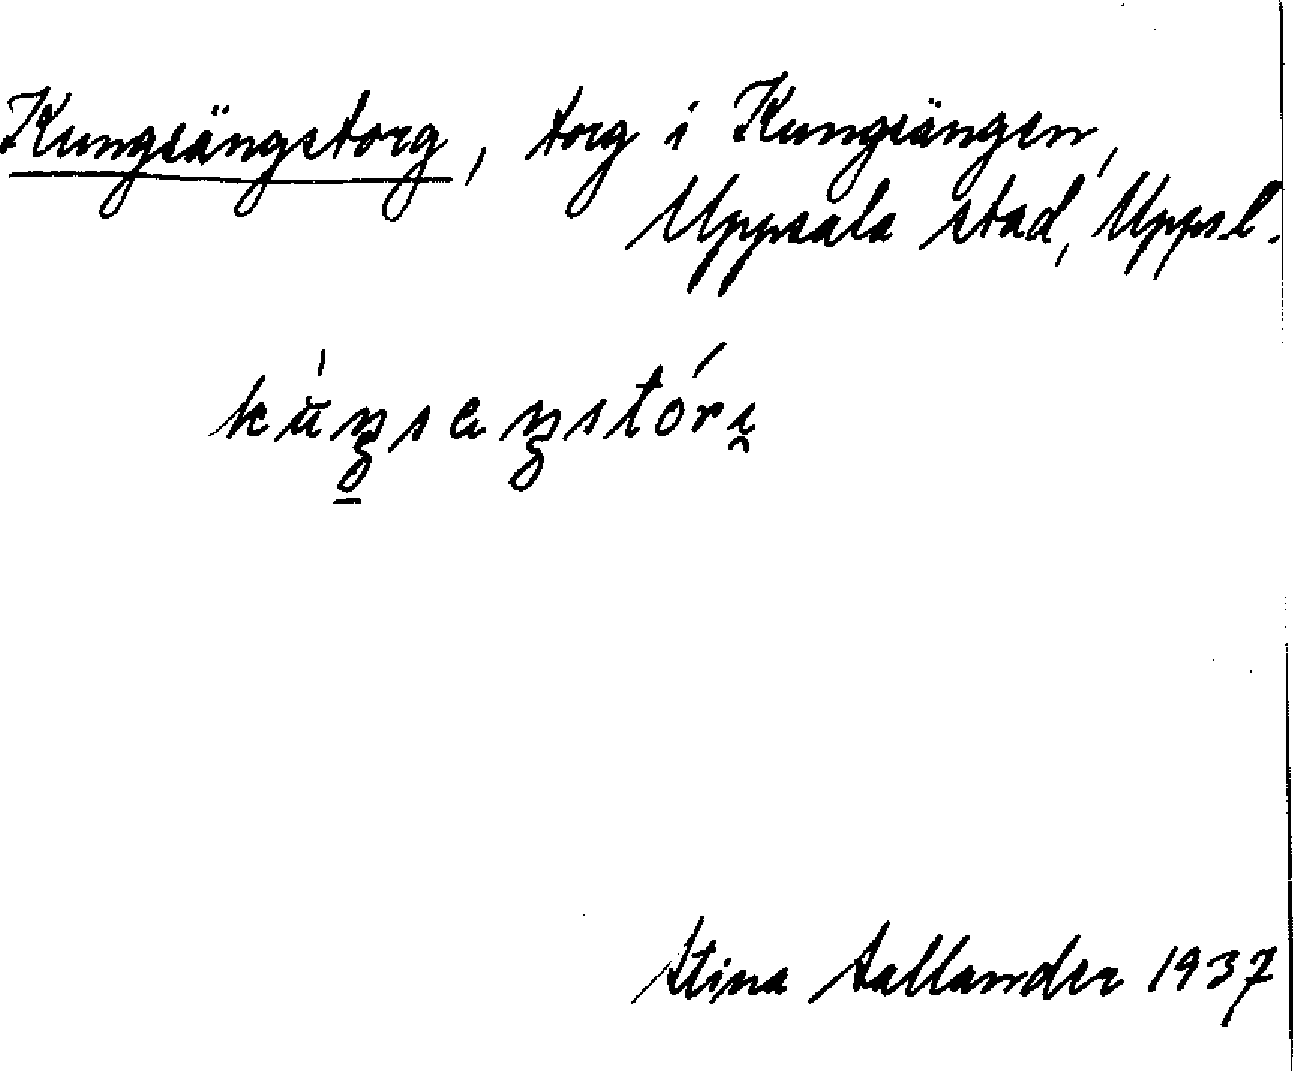 Kungsängstorg, torg i Kungsängen,
Uppsala stad, Uppl.
Stina Sallander 1937